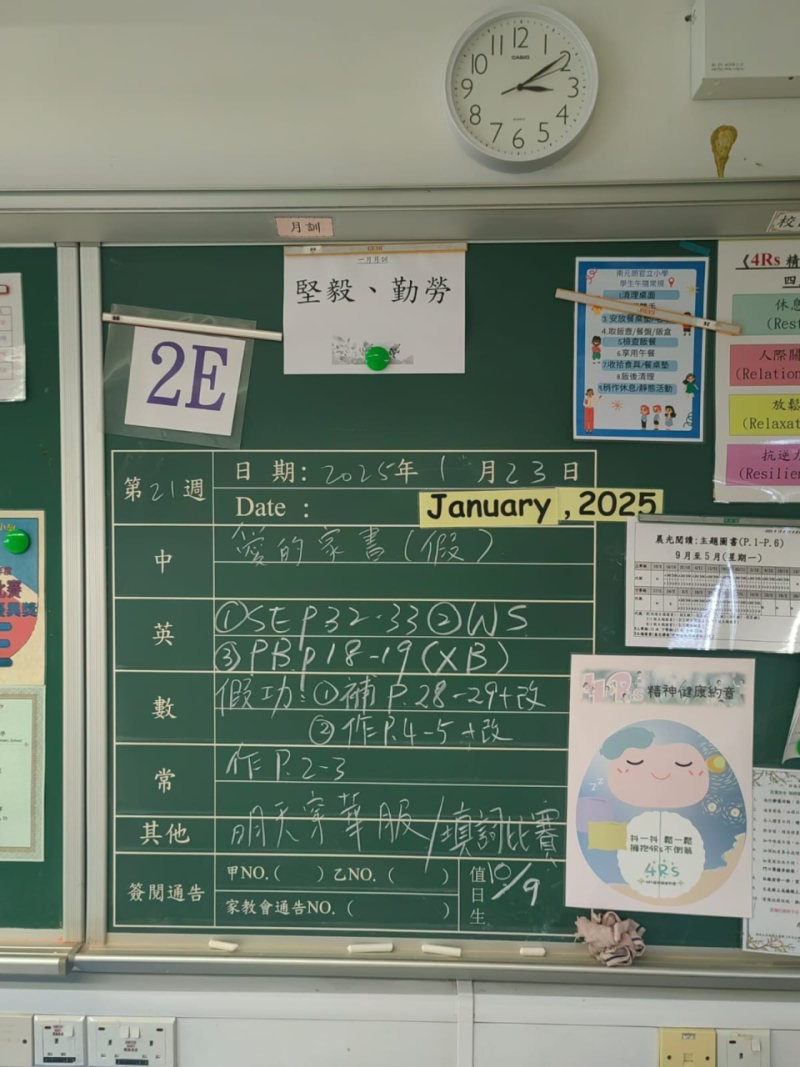 12
1
2
3
4
5
6
7
8
9
10
CASIO
月訓
一月月訓
堅毅、勤勞
2E
南元朗官立小學
學生午膳常規
1.清理桌面
3.安放餐桌墊
4.取飯壺/餐盤/飯盒
5.檢查飯餐
6.享用午餐
7.收拾食具/餐桌墊
8.飯後清理
9.稍作休息/靜態活動
校
《4Rs 精
四
休息
(Rest
人際關
(Relation
放鬆
(Relaxat
抗逆力
(Resilien
第21週
日 期: 2025年 1 月23日
Date :
January , 2025
中
愛的家書(假)
英
①SE P32-33②WS
③PB.P18-19(XB)
數
假功:①補P.28-29+改
②作P.4-5+改
常
作P.2-3
其他
明天穿華服/填詞比賽
簽閱通告
甲NO.( )乙NO.( )
家教會通告NO.( )
值日生
10/9
晨光閱讀:主題圖書(P.1-P.6)
9月至5月(星期一)
4Rs 精神健康約章
抖一抖 鬆一鬆
擁抱4Rs不倒翁
4Rs